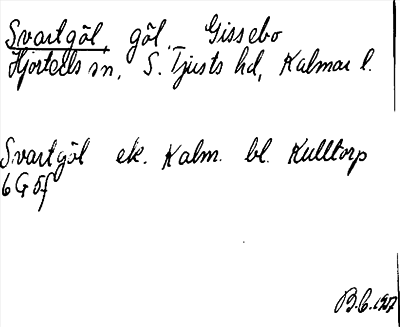 Svartgöl, göl, Gissebo
Hjorteds sn, S. Tjusts hd, Kalmar l.
Svartgöl ek. Kalm. bl. Kulltorp
6 G 5f
B.C. 1927